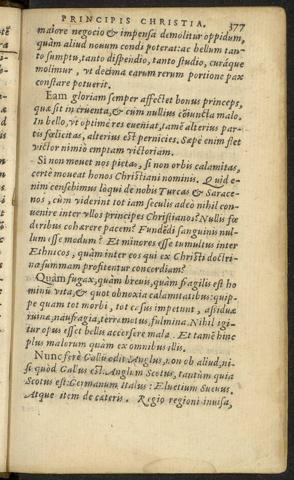 PRINCIPIS CHRISTIA. 377
maiore negocio & impensa demolitur oppidum,
quàm aliud nouum condi poterat: ac bellum tan-
to sumptu, tanto dispendio, tanto studio, curáque
molimur, vt decima earum rerum portione pax
constare potuerit.
Eam gloriam semper affectet bonus princeps,
quæ sit incruenta, & cũ nullius cõiuncta malo.
In bello, vt optimè res eueniat, tamẽ alterius par-
tis fœlicitas, alterius est pernicies. Sæpè enim flet
victor nimio emptam victoriam.
Si non mouet nos pietas, si non orbis calamitas,
certè moueat honos Christiani nominis. Quid e-
nim censebimus loqui de nobis Turcas & Sarace-
nos, cùm viderint tot iam seculis adeò nihil con-
uenire inter vllos principes Christianos? Nullis fœ
deribus cohærere pacem? Fundẽdi sanguinis nul-
lum esse modum? Et minores esse tumultus inter
Ethnicos, quàm inter eos qui ex Christi doctri-
na summam profitentur concordiam?
Quàm fugax, quàm breuis, quàm fragilis est ho
minũ vita, & quot obnoxia calamitatibus: quip-
pe quam tot morbi, tot casus impetunt, assiduè
ruinæ, naufragia, terræmotus, fulmina. Nihil igi-
tur opus esset bellis accersere mala. Et tamẽ hinc
plus malorum quàm ex omnibus illis.
Nunc ferè Gallũ odit Anglus, non ob aliud, ni-
si quòd Gallus est: Anglum Scotus, tantùm quia
Scotus est: Germanum Italus: Eluetium Sueuus.
Atque item de cæteris. Regio regioni inuisa,